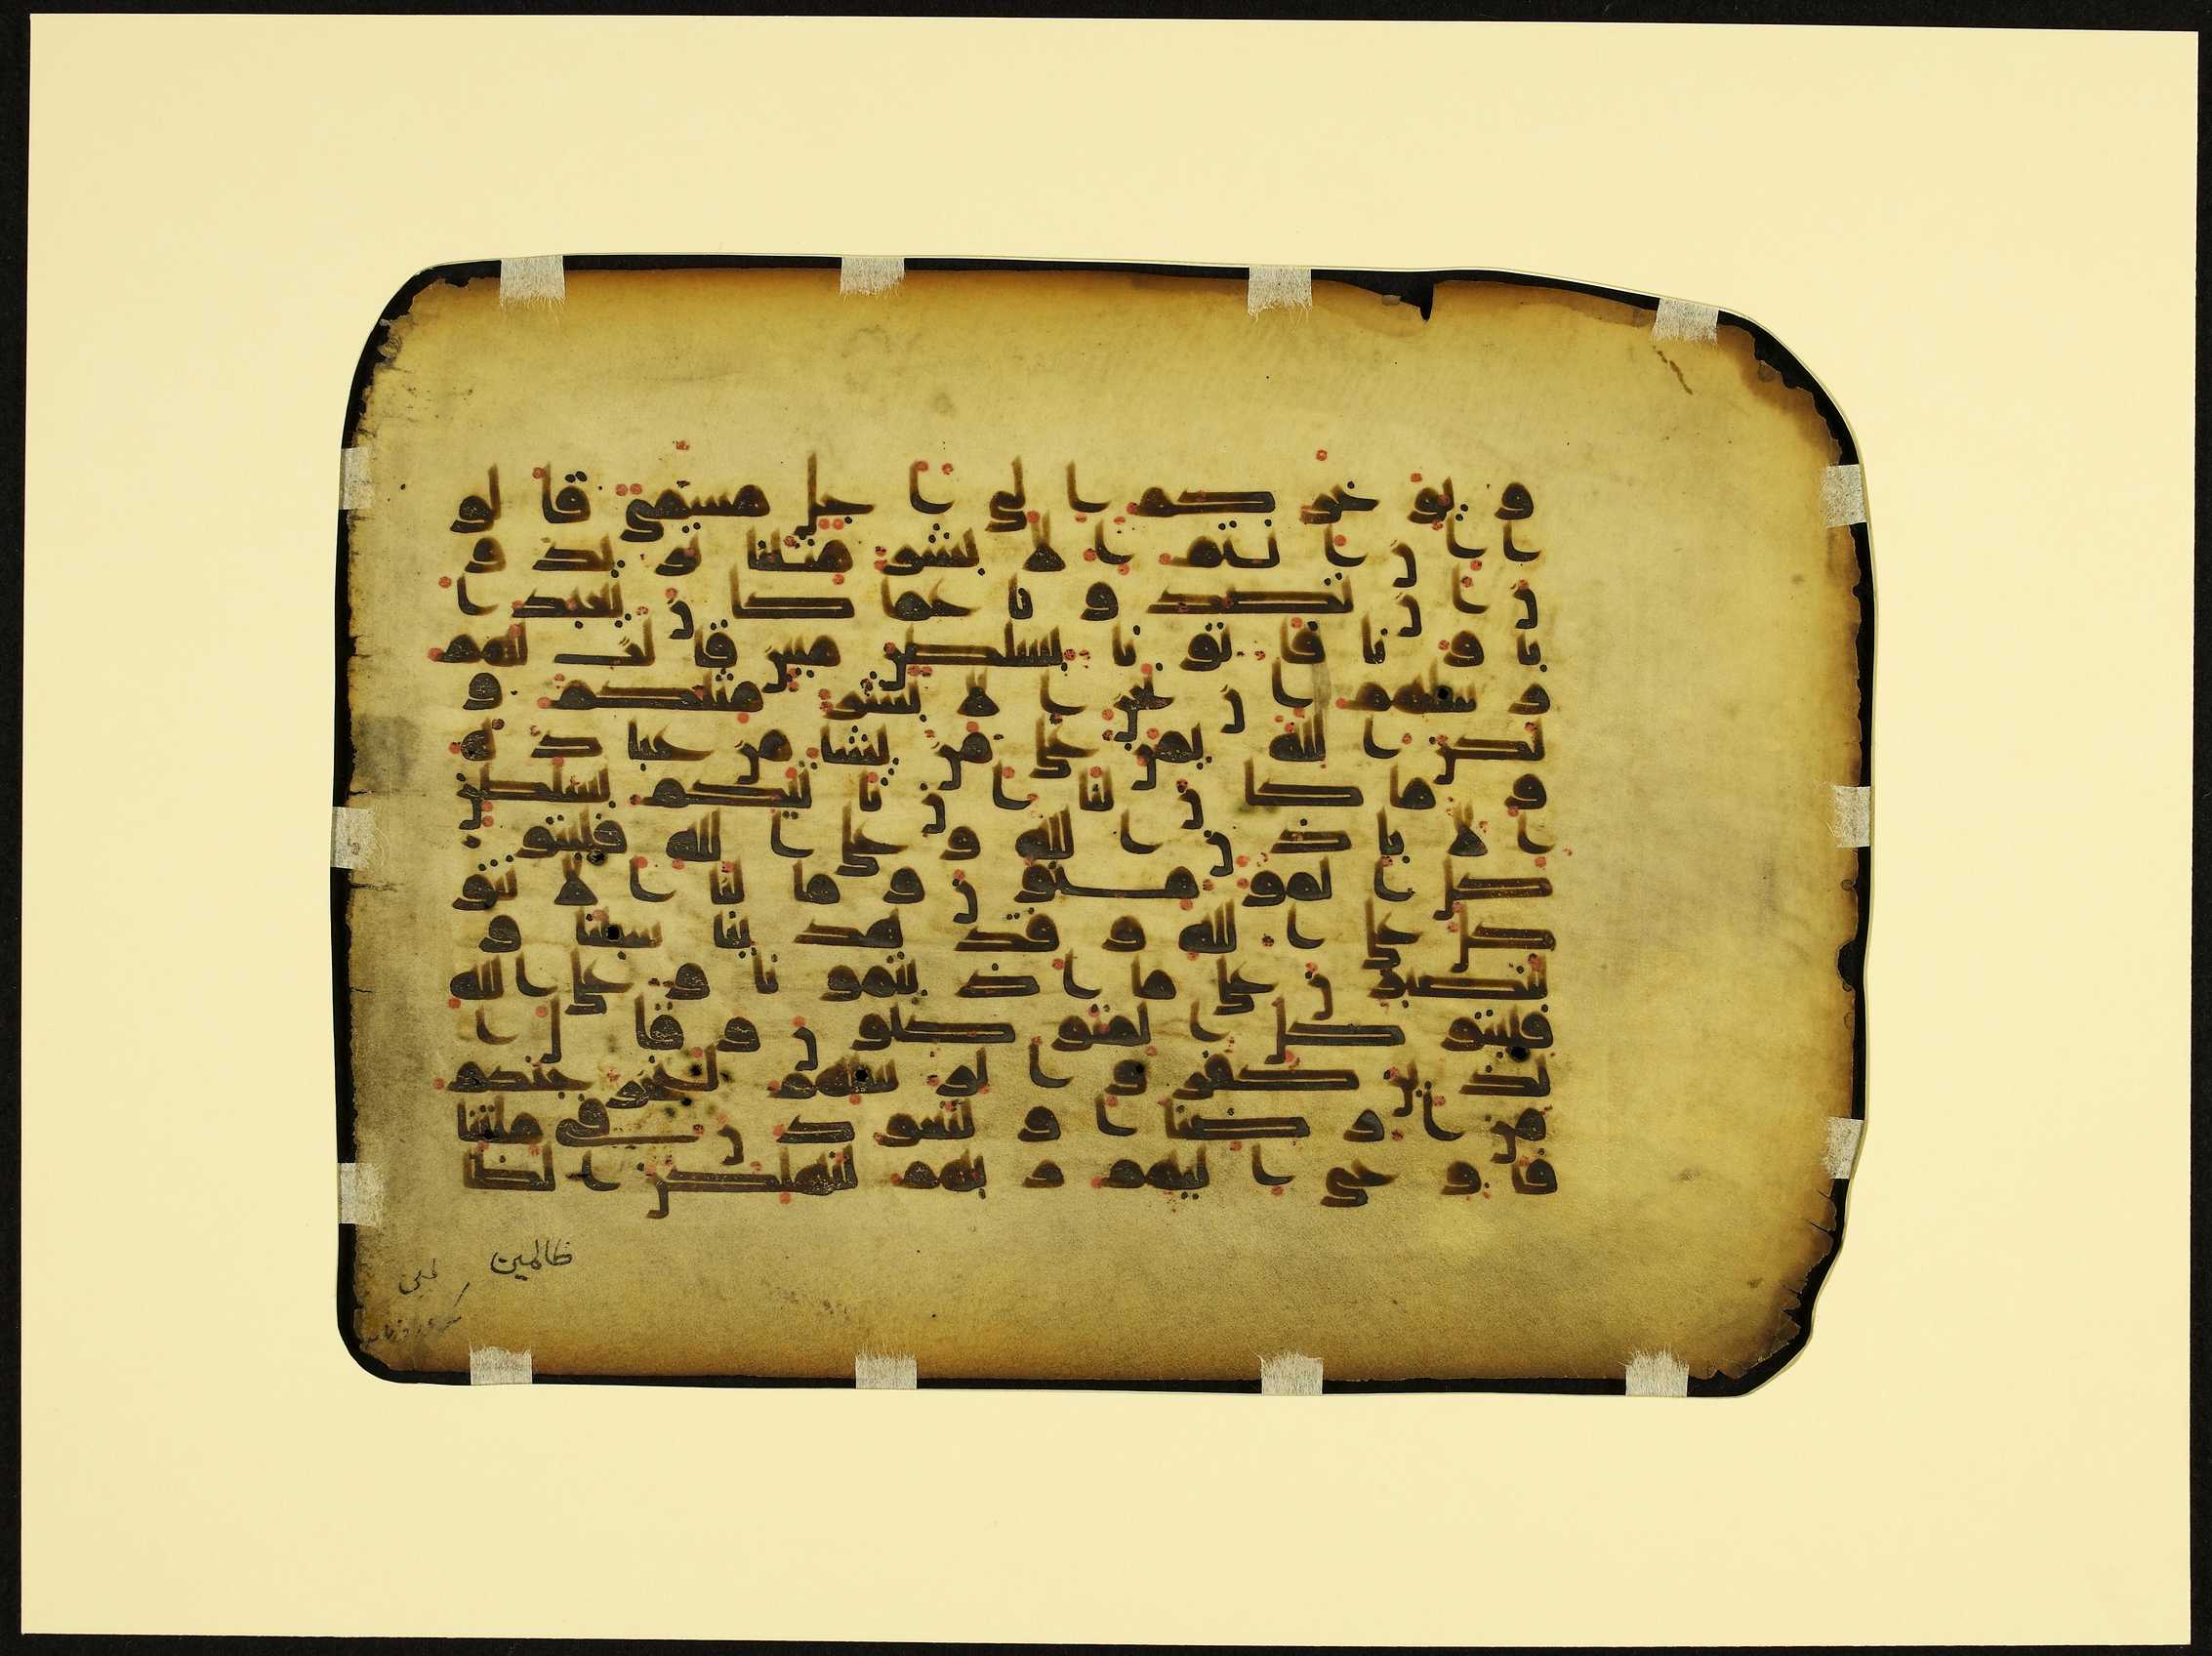 و يوخركم الى اجل مسمى قالو
ا ان انتم الا بشر مثلنا تريدو
ن ان تصدونا عما كان يعبد ا
باونا فاتونا بسلطن مبين قالت لهم
رسلهم ان نحن الا بشر مثلكم و
لكن الله يمن على من يشا من عباده
و ما كان لنا ان ناتيكم بسلطن
الا باذن الله و على الله فليتو
كل المومنون و ما لنا الا نتو
كل على الله و قد هدينا سبلنا و
لنصبرن على ما اذيتمونا و على الله
فليتوكل المتوكلون و قال ا
لذين كفروا لرسلهم لنخرجنكم
من ارضنا او لتعودن في ملتنا
فاوحى اليهم ربهم لنهلكن الظا
ظالمين